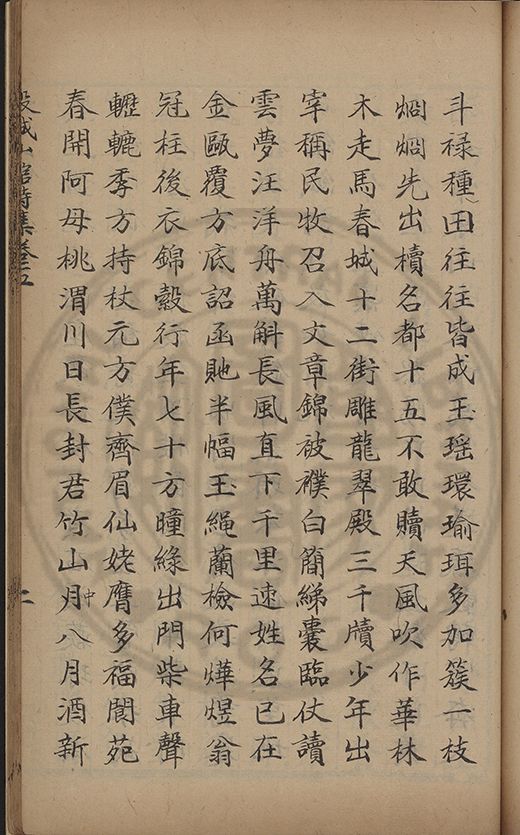 斗祿種田往往皆成玉瑶環瑜珥多加簇一枝
烱烱先出櫝名都十五不敢贖天風吹作華林
木走馬春城十二街雕龍翠殿三千牘少年出
宰稱民牧召入文章錦被襆白簡綈囊臨仗讀
雲夢汪洋舟萬斛長風直下千里速姓名已在
金甌覆方底詔函貤半幅玉繩蘭檢何燁煜翁
冠柱後衣錦縠行年七十方瞳綠出門柴車聲
轣轆季方持杖元方僕齊眉仙姥膺多福閬苑
春開阿母桃渭川日長封君竹山中月八月酒新
穀城山館詩集卷五
二